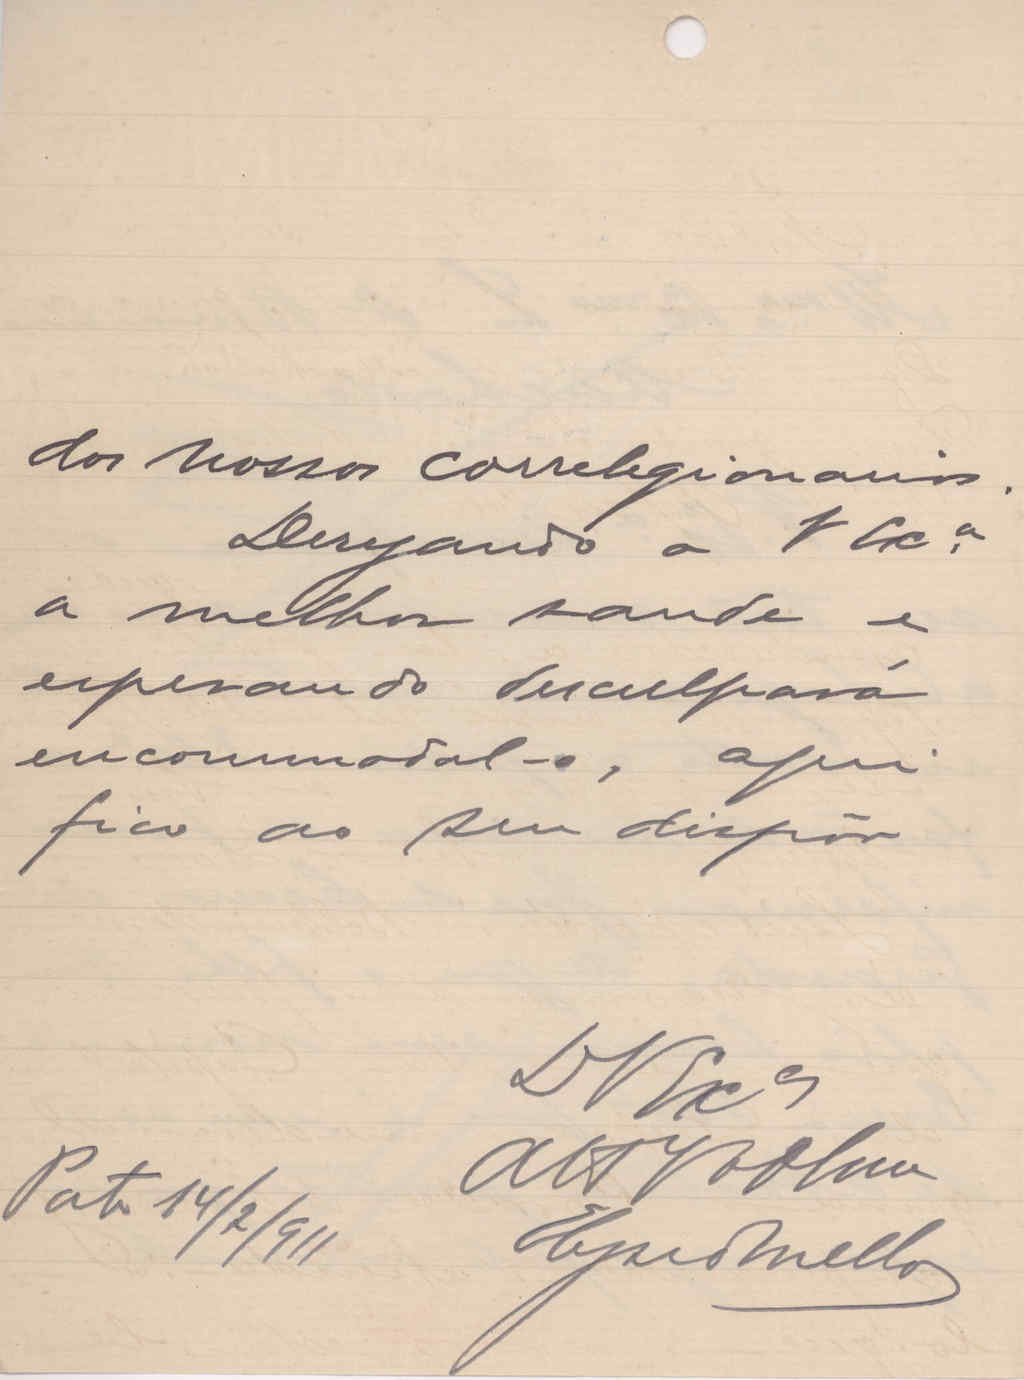 dos nossos correlegionarios.
Desejando a V Exª.
a melhor saude e
esperando desculpará
encommodal-o, aqui
fico ao seu dispôr
D V Exª
Att Vor
Porto 14/2/911
Mello